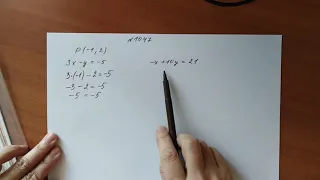 №1047
P(-1; 2)
3x - y = -5
3·(-1) - 2 = -5
-3 - 2 = -5
-5 = -5
-x + 10y = 21